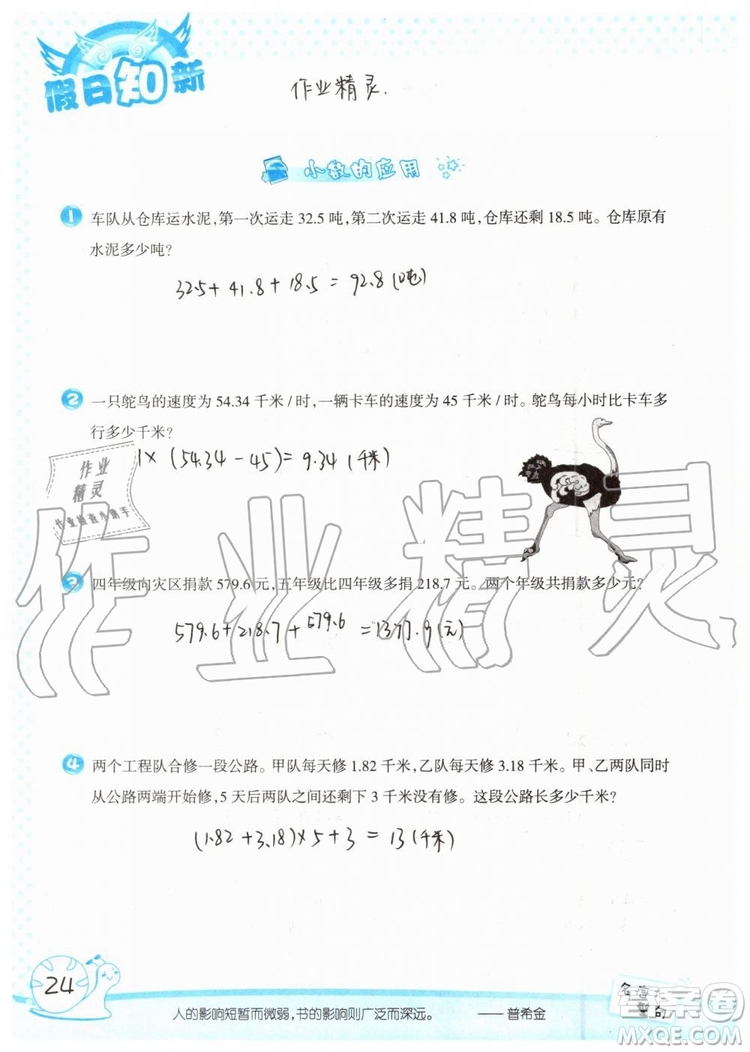 假日知新
作业精灵.
小数的应用
1 车队从仓库运水泥,第一次运走 32.5 吨,第二次运走 41.8 吨,仓库还剩 18.5 吨。仓库原有
水泥多少吨?
32.5+41.8+18.5=92.8(吨)
2 一只鸵鸟的速度为 54.34 千米/时,一辆卡车的速度为 45 千米/时。鸵鸟每小时比卡车多
行多少千米?
1×(54.34-45)=9.34(千米)
作业
精灵
作业检查小助手
作业精灵
3 四年级向灾区捐款 579.6 元,五年级比四年级多捐 218.7 元。两个年级共捐款多少元?
579.6+218.7+579.6=1377.9(元)
4 两个工程队合修一段公路。甲队每天修 1.82 千米,乙队每天修 3.18 千米。甲、乙两队同时
从公路两端开始修,5 天后两队之间还剩下 3 千米没有修。这段公路长多少千米?
(1.82+3.18)×5+3=13(千米)
24
人的影响短暂而微弱,书的影响则广泛而深远。 ——普希金
答案圈
MXQE.COM